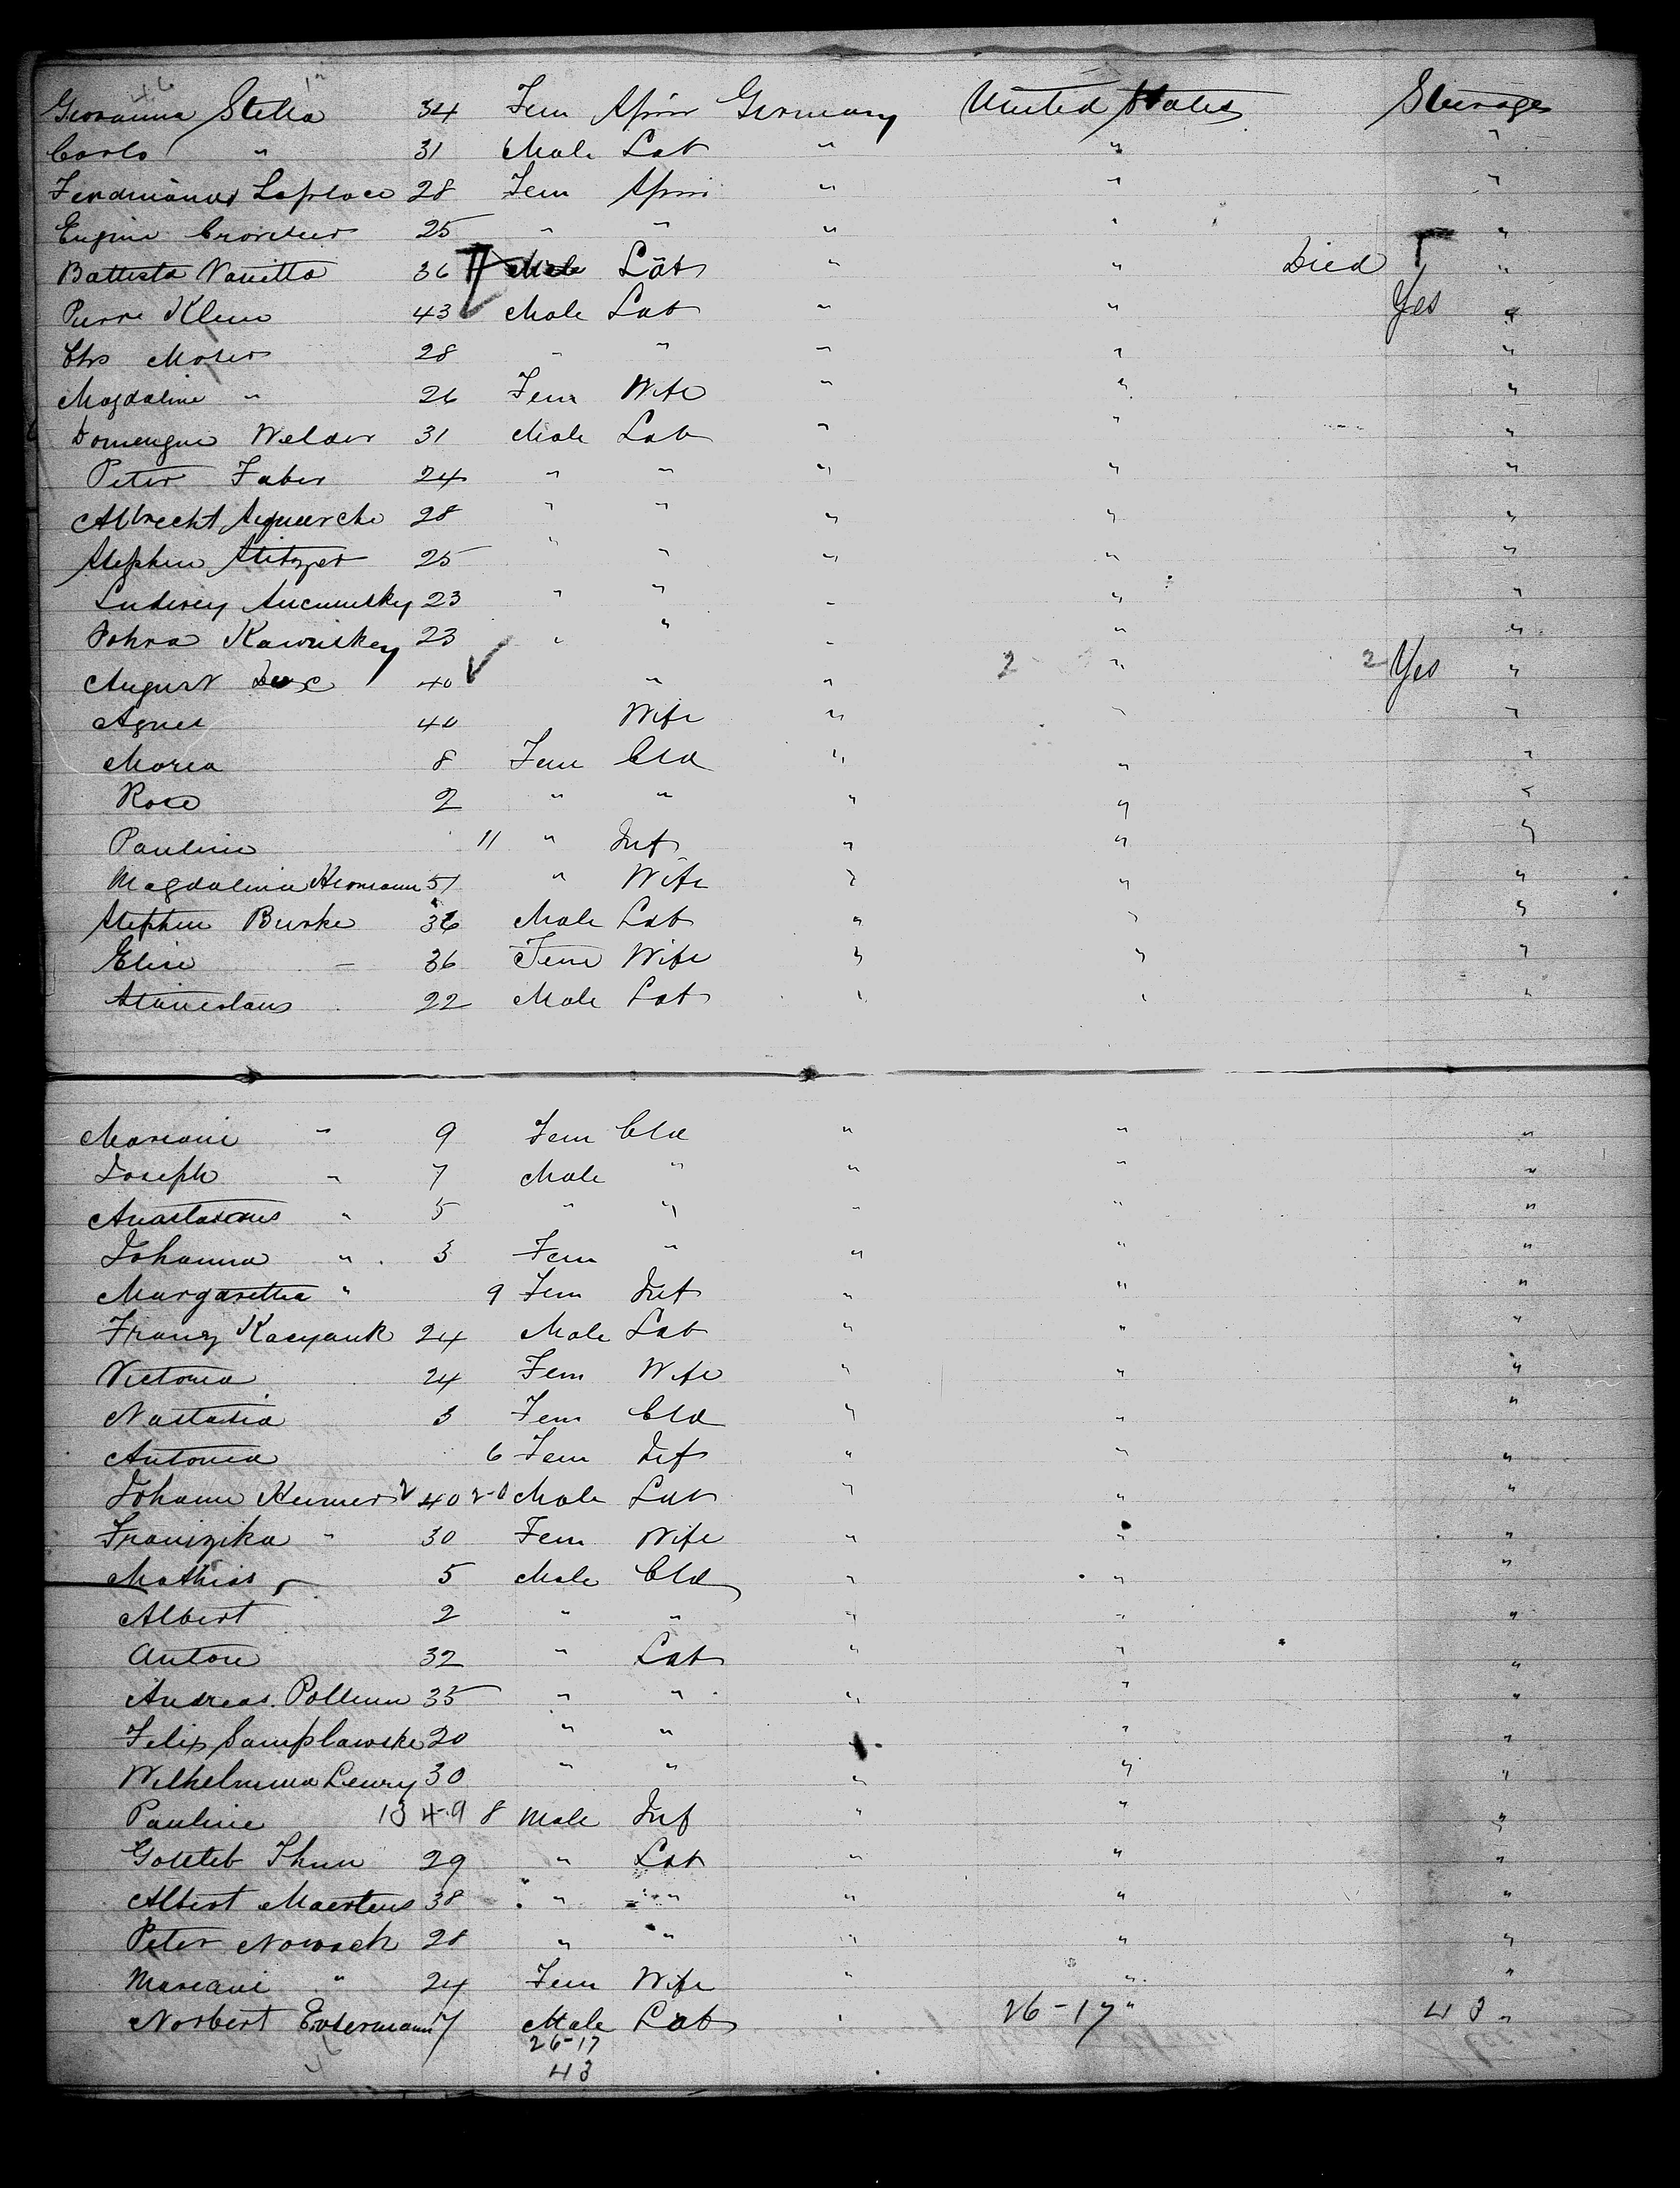 Giovanna Stella 34 Fem Spin Germany United States Steerage
Carlo " 31 Male Lab " " "
Ferdinand Laplace 28 Fem Spin " " "
25 " " " " "
Battista Vanetta 36 Male Lab " " Died "
Pierre Klein 43 Male Lab " " Yes "
Chs Moser 28 " " " " "
Magdaline " 26 Fem Wife " " "
Welder 31 Male Lab " " "
Peter Faber 24 " " " " "
Albrecht 28 " " " " "
Stephen 25 " " " " "
Ludwig 23 " " " " "
Kawriskey 23 " " " " "
August 40 " " 2 " 2 Yes "
Agnes 40 Wife " " "
Maria 8 Fem Cld " " "
Rose 2 " " " " "
Pauline 11 " Inf " " "
Magdalena Hermann 51 " Wife " " "
Stephen Burke 36 Male Lab " " "
Elise 36 Fem Wife " " "
Stanislaus 22 Male Lab " " "
Mariane " 9 Fem Cld " " "
Joseph " 7 Male " " " "
" 5 " " " " "
Johanna " 3 Fem " " " "
Margaretha " 9 Fem Inf " " "
Franz 24 Male Lab " " "
Victoria 24 Fem Wife " " "
Nastasia 3 Fem Cld " " "
Antonia 6 Fem Inf " " "
Johann 40 Male Lab " " "
Franizika " 30 Fem Wife " " "
Mathias 5 Male Cld " " "
Albert 2 " " " " "
Anton 32 " Lab " " "
Andreas 35 " " " " "
Felix Samplawske 20 " " " " "
Wilhelmina 30 " " " " "
Pauline 8 Male Inf " " "
Gottleb Thun 29 " Lab " " "
Albert Maertens 38 " " " " "
Peter Nowack 28 " " " " "
Mariane " 24 Fem Wife " " "
Norbert Male Lab " 26-17 " 43 "
26-17
43